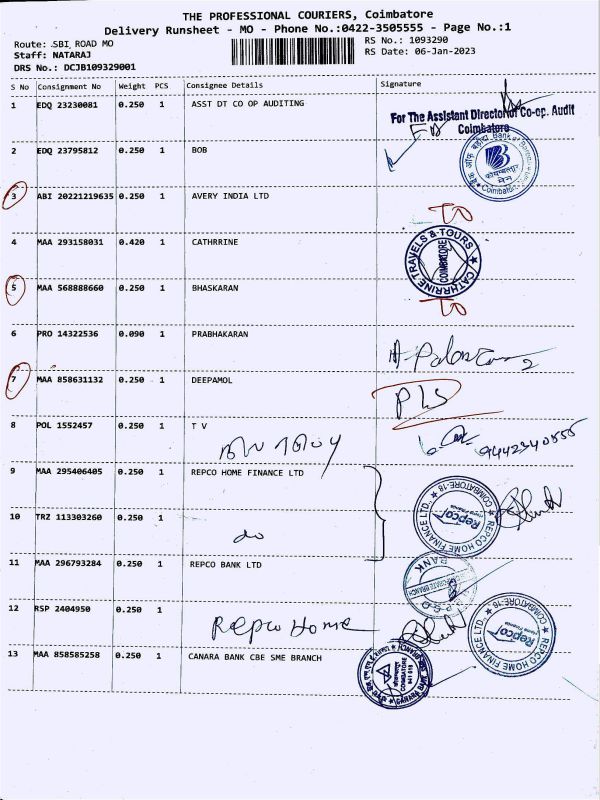 THE PROFESSIONAL COURIERS, Coimbatore
Delivery Runsheet - MO - Phone No.:0422-3505555 - Page No.:1
Route: SBI ROAD MO
RS No.: 1093290
Staff: NATARAJ
RS Date: 06-Jan-2023
DRS No.: DCJB109329001
S No Consignment No Weight PCS Consignee Details Signature
1 EDQ 23230081 0.250 1 ASST DT CO OP AUDITING
For The Assistant Director of Co-op. Audit
Coimbatore
2 EDQ 23795812 0.250 1 BOB
3 ABI 20221219635 0.250 1 AVERY INDIA LTD
TO
4 MAA 293158031 0.420 1 CATHRRINE
CATHRRINE TRAVELS & TOURS
COIMBATORE
5 MAA 568888660 0.250 1 BHASKARAN
TO
6 PRO 14322536 0.090 1 PRABHAKARAN
7 MAA 858631132 0.250 1 DEEPAMOL
PLS
8 POL 1552457 0.250 1 T V
9442340555
9 MAA 295406405 0.250 1 REPCO HOME FINANCE LTD
REPCO HOME FINANCE LTD. COIMBATORE-18
Repco
10 TRZ 113303260 0.250 1
do
11 MAA 296793284 0.250 1 REPCO BANK LTD
BANK
12 RSP 2404950 0.250 1
Repco Home
REPCO HOME FINANCE LTD. COIMBATORE-18
Repco
13 MAA 858585258 0.250 1 CANARA BANK CBE SME BRANCH
COIMBATORE
641 018
CANARA BANK